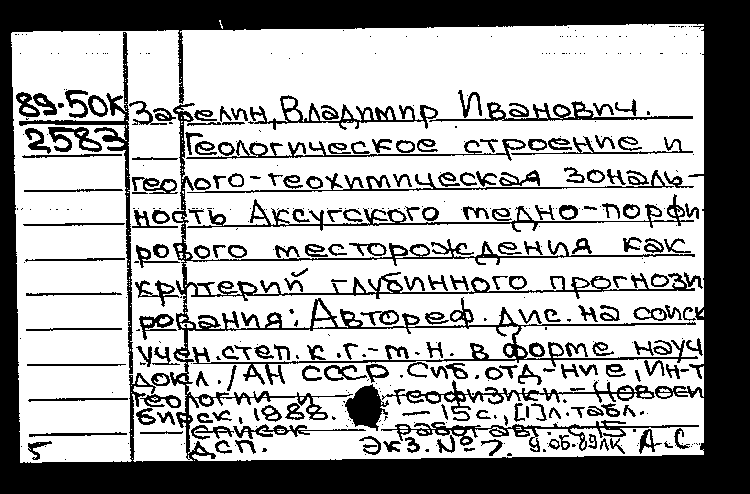 89-50К Забелин, Владимир Иванович.
2583 Геологическое строение и
геолого-геохимическая зональ-
ность Аксугского медно-порфи-
рового месторождения как
критерий глубинного прогнози
рования: Автореф. дис. на соиск
учен. степ. к. г.-м. н. в форме науч
докл. / АН СССР. Сиб. отд-ние, Ин-т
геологии и геофизики. - Новоси
бирск, 1988. — 15 с., [1] л. табл.
Список работ авт. с. 15.
5 ДСП. Экз. № 7. 9.05.89 А.С.